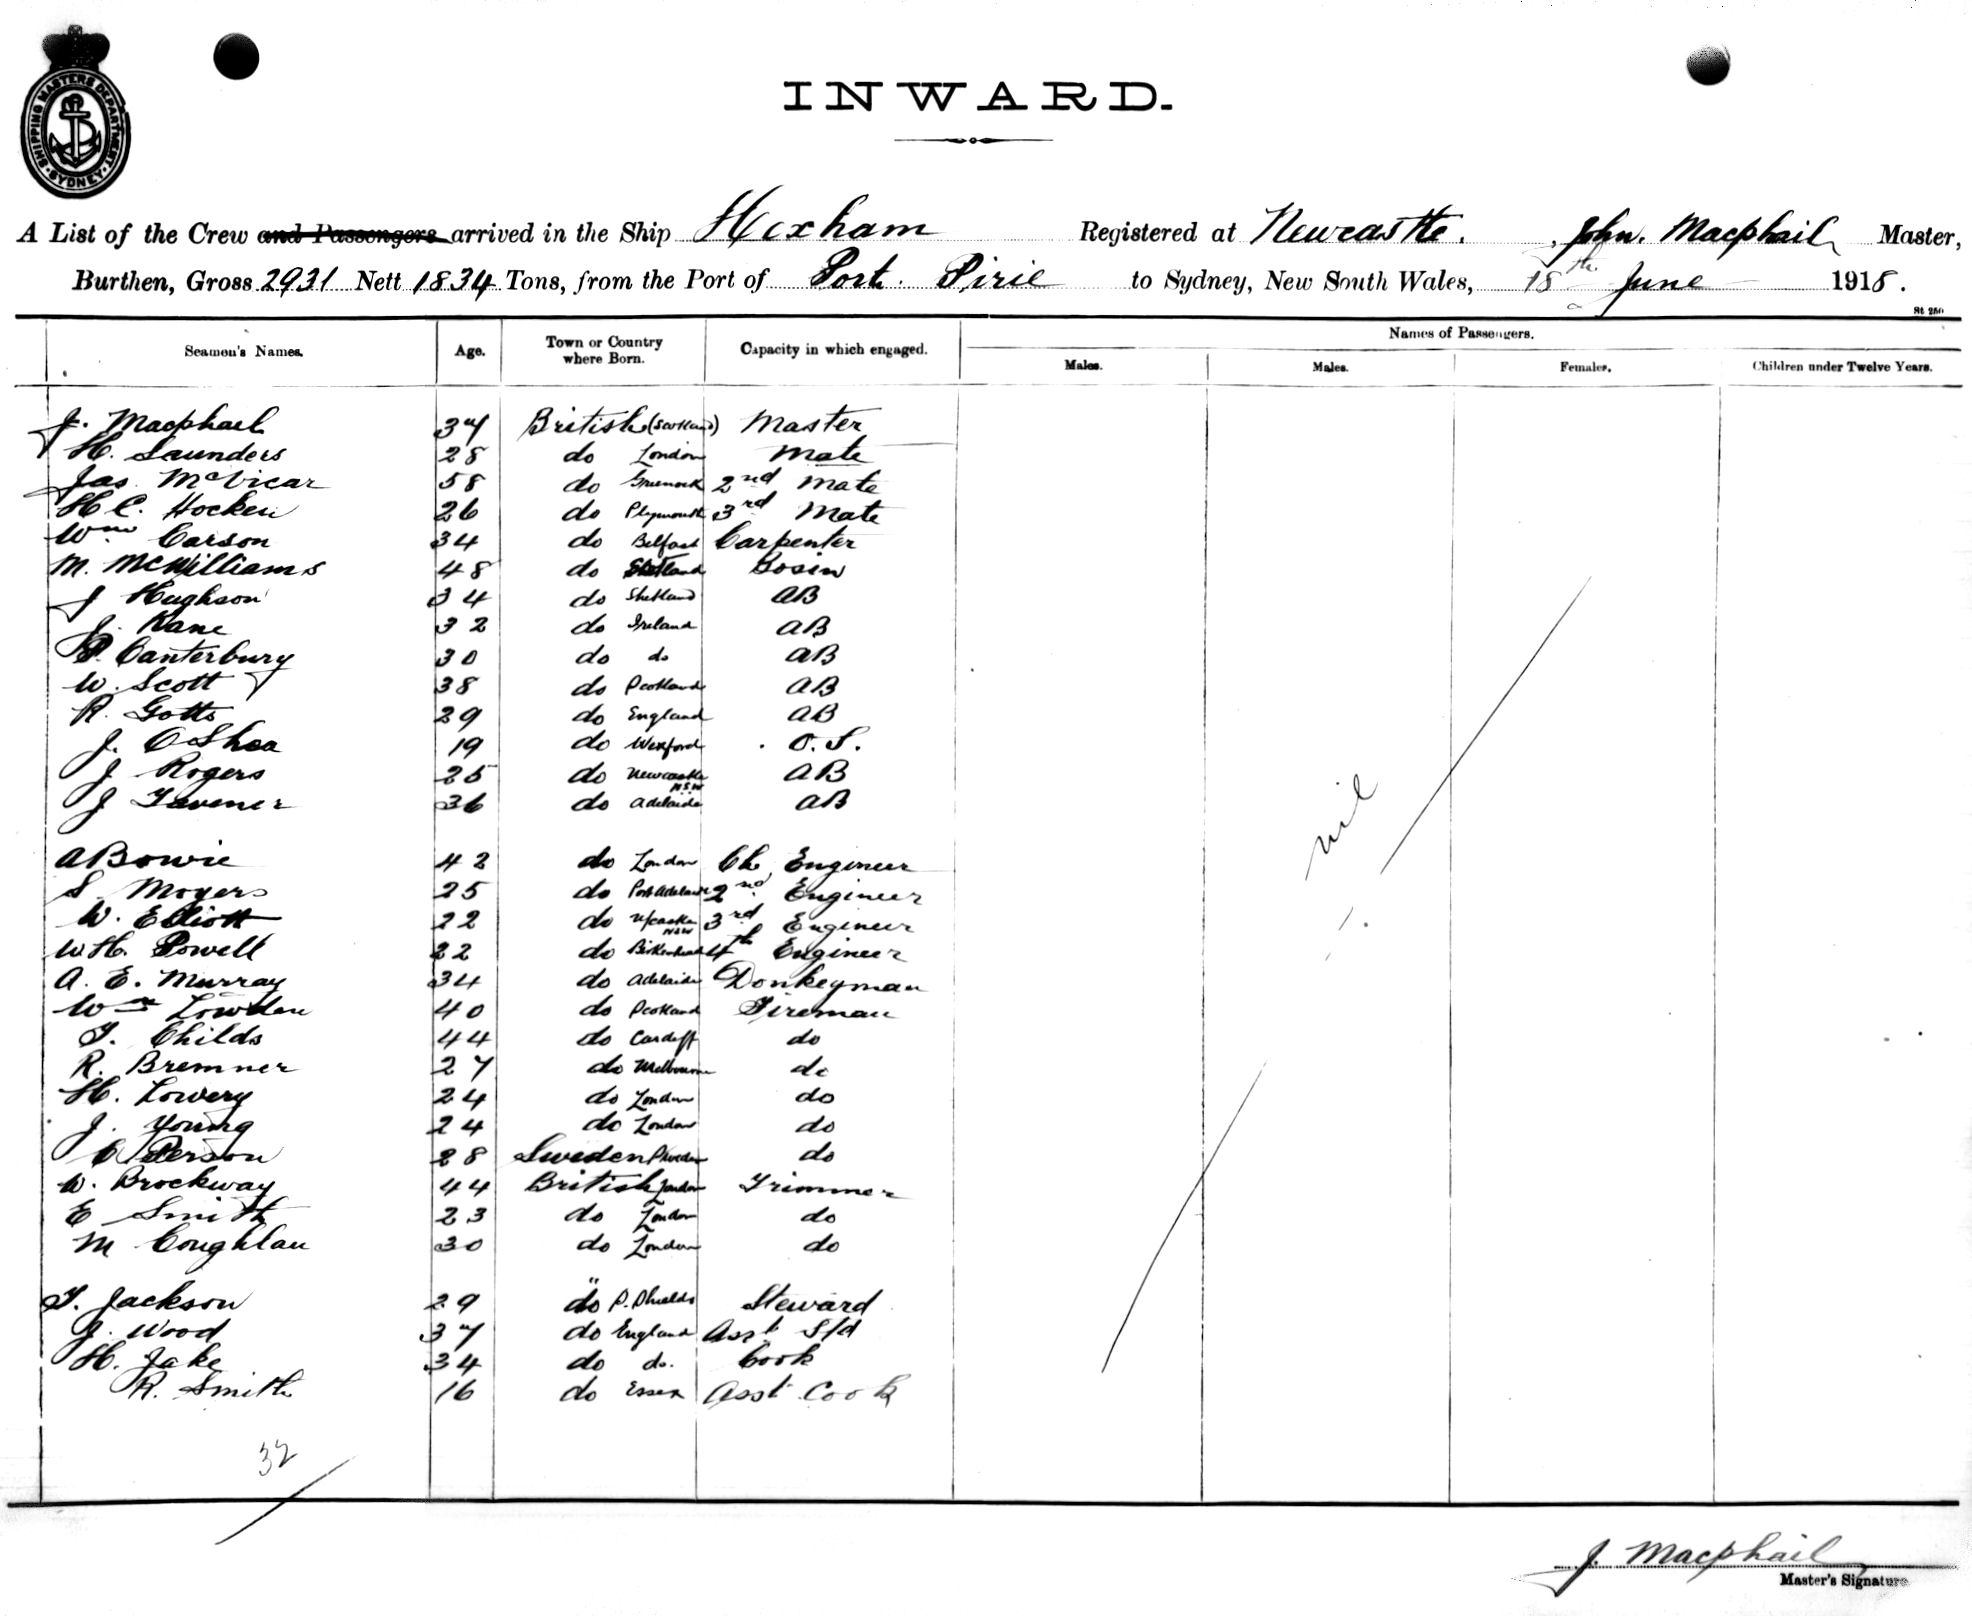 SHIPPING MASTERS DEPARTMENT
SYDNEY
INWARD.
A List of the Crew and Passengers arrived in the Ship Hexham Registered at Newcastle. John. Macphail Master,
Burthen, Gross 2931 Nett 1834 Tons, from the Port of Port Pirie to Sydney, New South Wales, 18th June 1918.
St 250
Seamen's Names. Age. Town or Country where Born. Capacity in which engaged. Names of Passengers.
Males. Males. Females. Children under Twelve Years.
J. Macphail 37 British (Scotland) Master
H. Saunders 28 do London Mate
Jas McVicar 58 do Greenock 2nd Mate
H C. Hocken 26 do Plymouth 3rd Mate
Wm Carson 34 do Belfast Carpenter
M. McWilliams 48 do Bosin
J Hughson 34 do Shetland AB
J. Kane 32 do Ireland AB
P. Canterbury 30 do do AB
W. Scott 38 do Scotland AB
R. Gotts 29 do England AB
J. O'Shea 19 do Wexford O.S.
J Rogers 25 do Newcastle NSW AB
J Tavener 36 do Adelaide AB
A Bowie 42 do London Ch Engineer
S. Moyers 25 do Port Adelaide 2nd Engineer
W. Elliott 22 do N/castle NSW 3rd Engineer
W.H. Powell 22 do Birkenhead 4th Engineer
A. E. Murray 34 do Adelaide Donkeyman
Wm Lowden 40 do Scotland Fireman
T. Childs 44 do Cardiff do
R. Bremner 27 do Melbourne do
H. Lowery 24 do London do
J. Young 24 do London do
C Person 28 Sweden Sweden do
W. Brockway 44 British London Trimmer
E Smith 23 do London do
M Coughlan 30 do London do
T. Jackson 29 do S. Shields Steward
J. Wood 37 do England Asst S/d
H. Jake 34 do do. Cook
R. Smith 16 do Essex Asst Cook
nil
32
J. Macphail
Master's Signature